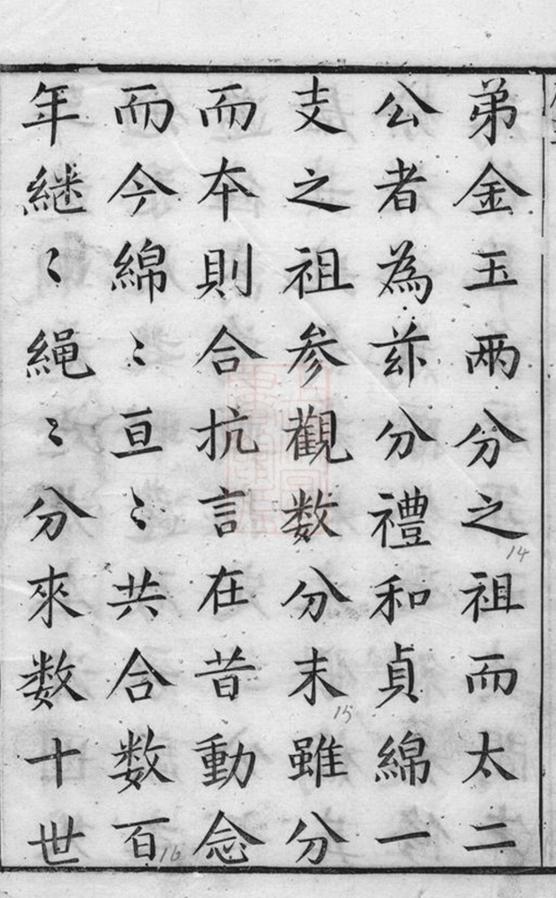 弟金玉兩分之祖而太二
公者為茲分禮和貞綿一
支之祖参觀数分末雖分
而本則合抗言在昔動念
而今綿〻亘〻共合数百
年継〻繩〻分來数十世
14
15
16